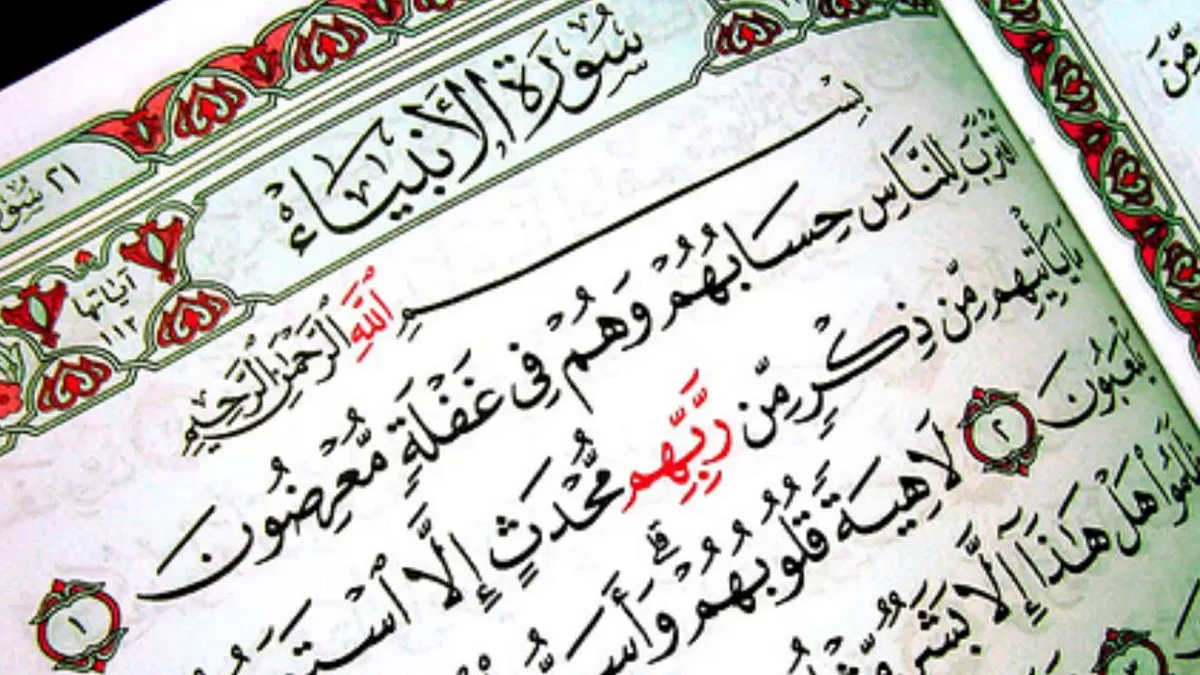 ٢١ سُو
سُورَةُ الأَنبِيَاءِ
آيَاتُهَا
١١٢
بِسْمِ ٱللَّهِ ٱلرَّحْمَٰنِ ٱلرَّحِيمِ
ٱقْتَرَبَ لِلنَّاسِ حِسَابُهُمْ وَهُمْ فِى غَفْلَةٍ مُّعْرِضُونَ ١
مَا يَأْتِيهِم مِّن ذِكْرٍ مِّن رَّبِّهِم مُّحْدَثٍ إِلَّا ٱسْتَمَعُوهُ
يَلْعَبُونَ ٢ لَاهِيَةً قُلُوبُهُمْ ۗ وَأَسَرُّ
ظَلَمُوا۟ هَلْ هَٰذَآ إِلَّا بَشَرٌ مِّثْلُ
٣
مِّنَ